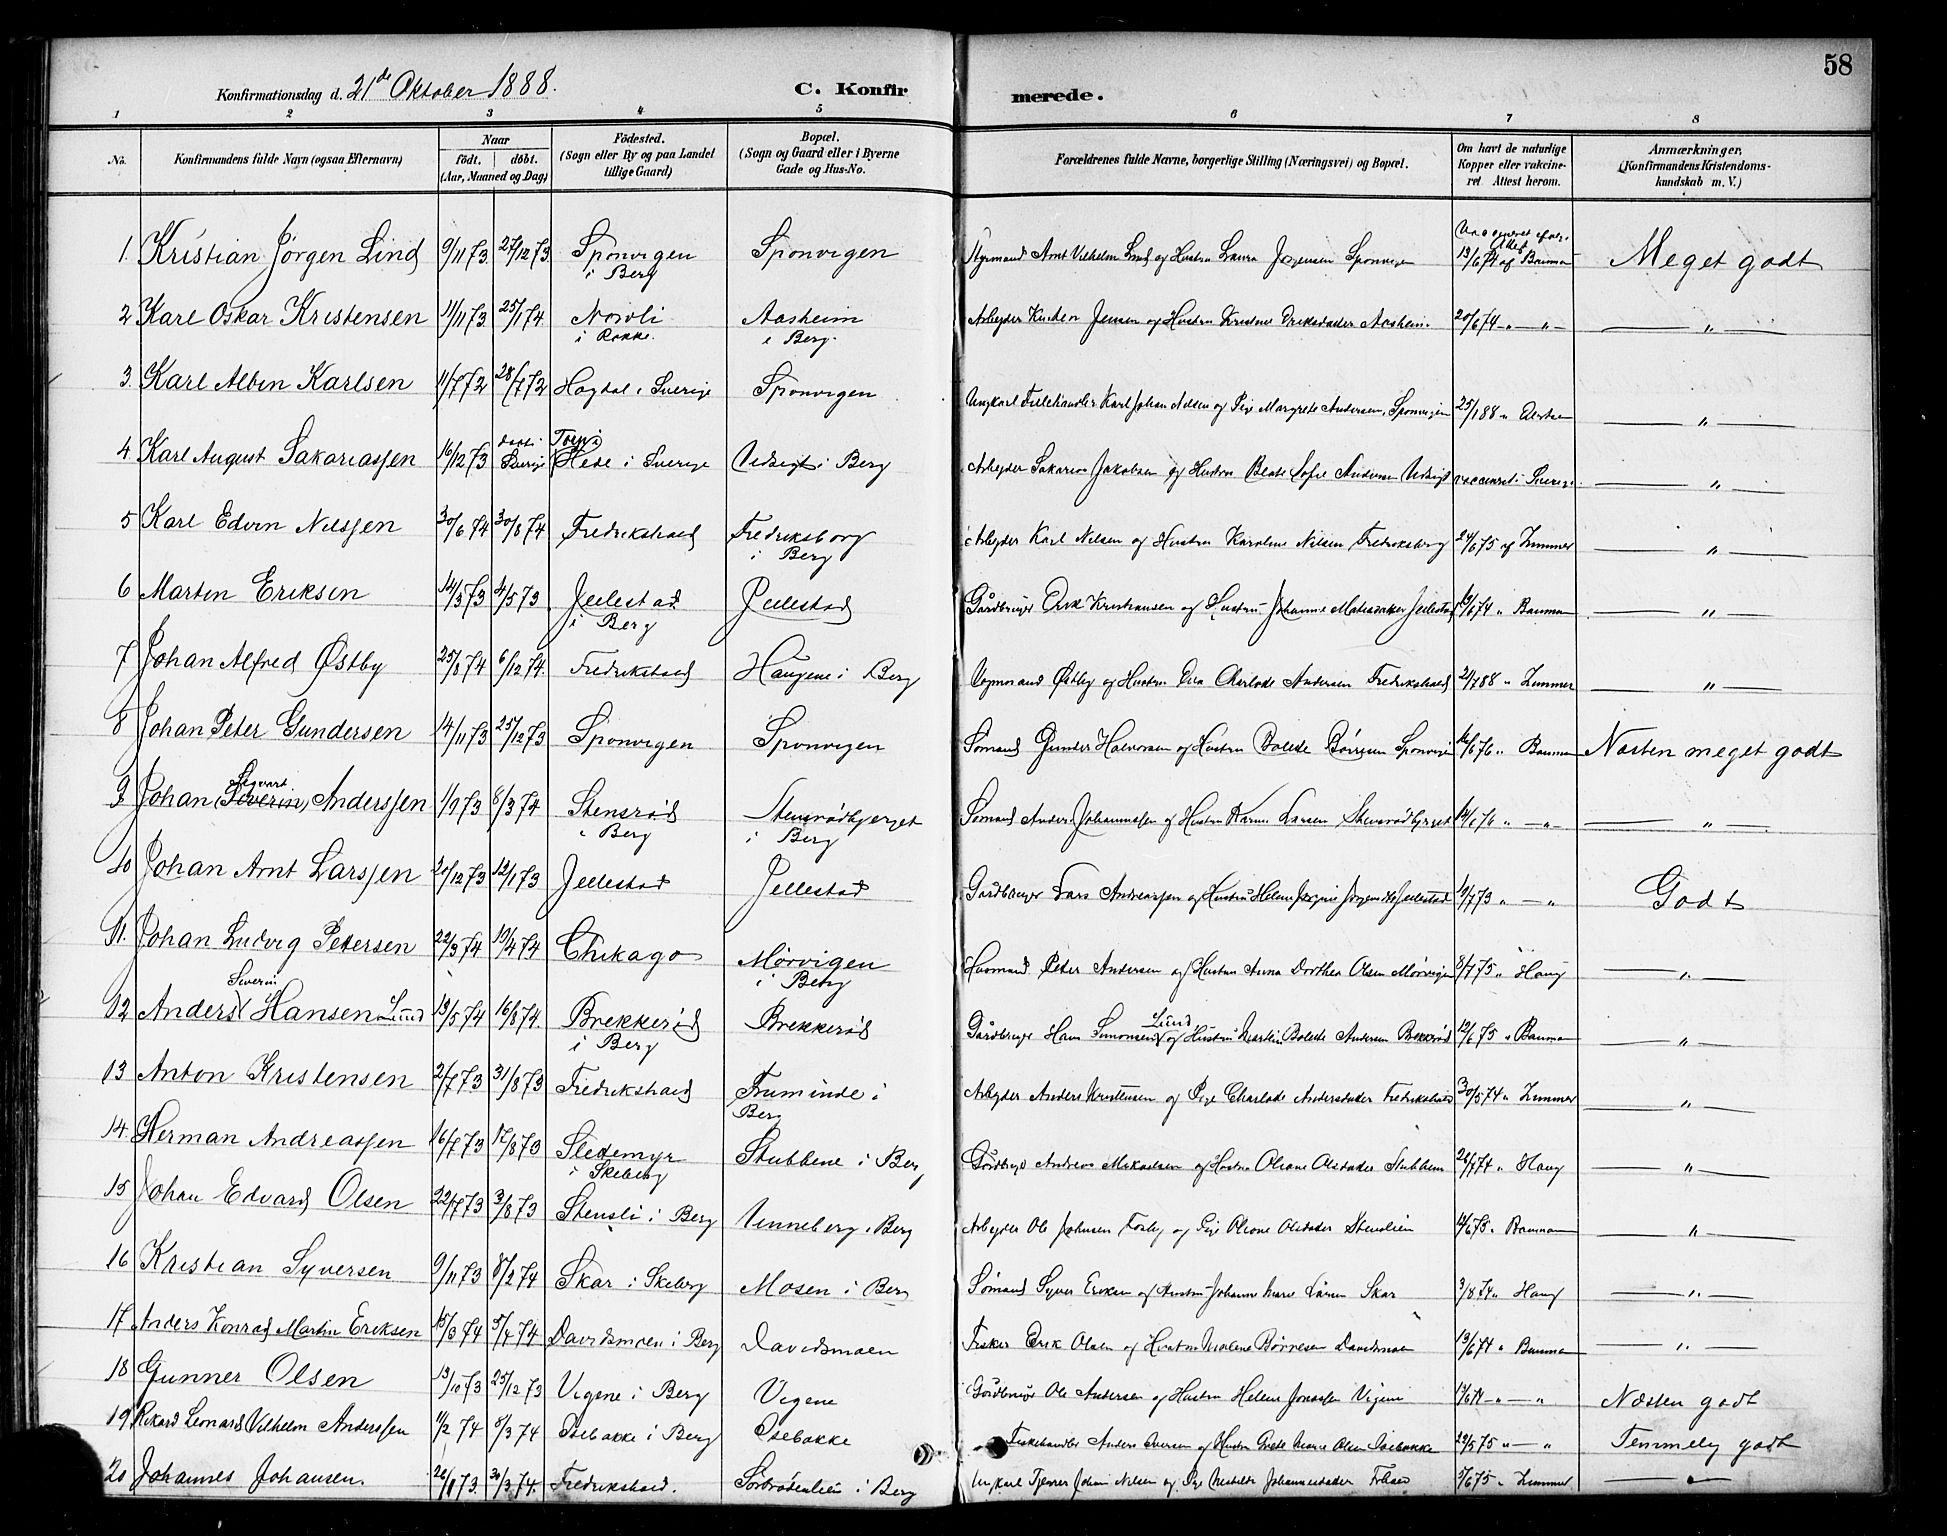 58
Konfirmationsdag d. 21de Oktober 1888.
C. Konfirmerede.
1 2 3 4 5 6 7 8
No.
Konfirmandens fulde Navn (ogsaa Efternavn)
Naar
födt. döbt.
(Aar, Maaned og Dag)
Födested.
(Sogn eller By og paa Landet
tillige Gaard)
Bopæl.
(Sogn og Gaard eller i Byerne
Gade og Hus-No.
Forældrenes fulde Navne, borgerlige Stilling (Næringsvei) og Bopæl.
Om havt de naturlige
Kopper eller vakcine-
ret Attest herom.
Anmærkninger.
(Konfirmandens Kristendoms-
kundskab m. V.)
1. Kristian Jörgen Lind 9/11 73. 27/12 73. Sponvigen i Berg Sponvigen Styrmand Arnt Vilhelm Lind og Hustru Laura Jörgensen Sponvigen 13/6 74 af Bauman Meget godt
2 Karl Oskar Kristensen 11/11 73. 25/1 74 i Rokke. Aasheim i Berg. Arbeider Jensen og Hustru Aasheim 20/6 74 — " — — " —
3. Karl Albin Karlsen 11/7 72 28/7 72 Hogdal i Sverige Sponvigen Ungkarl Karl Johan Nilsen og Pige Margrete Andersen, Sponvigen 25/1 88 " — " —
4 Karl August Sakariassen 16/12 73 döbt i Sverige Hede i Sverige Vedsigt i Berg Arbeyder Sakarias Jakobsen og Hustru Beate Sofie Andersen Vedsigt vaccineret i Sverige — " —
5 Karl Edvin Nilssen 30/6 74 30/8 74 Fredrikshald Fredriksborg i Berg Arbeyder Karl Nilsen og Hustru Karoline Nilsen Fredriksborg 24/6 75 af Zimmer — " —
6 Martin Eriksen 14/3 73 4/5 73 Jellestad i Berg Jellestad Gårdbruger Erik Kristiansen og Hustru Johanne Jellestad 13/6 74 " Bauman — " —
7 Johan Alfred Østby 25/8 74 6/12 74. Fredrikshald Haugene i Berg Vognmand Østby og Hustru Charlotte Andersen Fredrikshald 21/7 88 " Zimmer — " —
8 Johan Peter Gundersen 14/11 73 25/12 73 Sponvigen Sponvigen Sömand Gunder Halvorsen og Hustru Bolette Sponvigen 16/6 76 " Bauman Næsten meget godt
9. Johan (Severin) Sigvart Anderssen 1/9 73 8/3 74 Stensröd i Berg Stensrödbjerget i Berg Sömand Anders Johannessen og Hustru Karen Larsen Stensrödbjerget 14/6 76 " — " — " —
10 Johan Arnt Larssen 20/12 73 12/1 73 Jellestad Jellestad Gårdbruger Lars Andreassen og Hustru Helene Jellestad 19/7 73 " — " Godt
11. Johan Ludvig Petersen 22/3 74 19/4 74 Chikago Mörvigen i Berg Husmand Peter Andersen og Hustru Anna Dorthea Olsen Mörvigen 8/7 75 " Haug — " —
12 Anders Severin Hansen Lund 13/5 74 16/8 74. Brekkeröd i Berg Brekkeröd Gårdbruger Hans Simonsen Lund og Hustru Bolette Andersen Brekkeröd 12/6 75 " Bauman — " —
13 Anton Kristensen 2/7 73 31/8 73 Fredrikshald Truminde i Berg Arbeyder Anders Kristensen og Pige Charlotte Andersdatter Fredrikshald 30/5 74 " Zimmer — " —
14. Herman Andreassen 16/7 73 17/8 73 Sletemyr i Skeberg Stubbene i Berg Gårdbruger Andreas Mikaelsen og Hustru Oliane Olsdatter Stubbene 26/7 74 " Haug — " —
15 Johan Edvard Olsen 22/7 73 3/8 73 Stensli i Berg Venneberg i Berg Arbeyder Ole Johnsen og Pige Oleane Olsdatter Stenslien 14/6 75 " Bauman — " —
16 Kristian Syversen 9/11 73 8/2 74 Skar i Skeberg Mosen i Berg Sömand Syver Eriksen og Hustru Johanne Marie Skar 3/8 74 " Haug — " —
17 Anders Konrad Martin Eriksen 15/3 74 5/4 74 Davidsmoen i Berg Davidsmoen Fisker Erik Olsen og Hustru Davidsmoen 13/6 74 " Bauman — " —
18 Gunner Olsen 13/10 73 25/12 73 Vigene i Berg Vigene Gårdbruger Ole Andersen og Hustru Helene Vigene — " Næsten godt
19 Rikard Leonard Vilhelm Anderssen 11/2 74 8/3 74 Isebakke i Berg Isebakke Fiskehandler Anders Iversen og Hustru Marie Olsen Isebakke 29/5 75 " — " Temmelig godt
20 Johannes Johansen. 26/11 73. 30/3 74. Fredrikshald. i Berg Ungkarl Tjener Johan Nilsen og Pige Johannesdatter 5/6 75 " Zimmer — " —